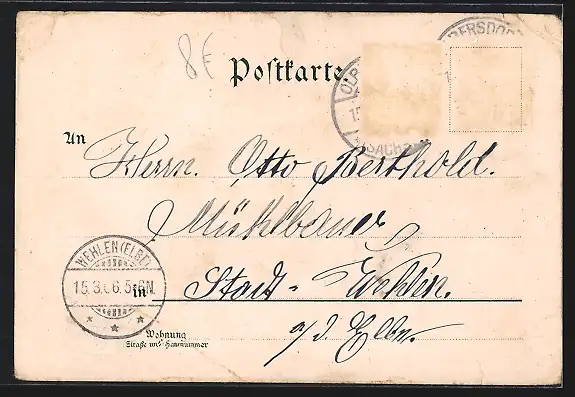 8£
Postkarte.
OLB ERSDORF
SACHS
An Herrn. Otto Berthold.
Mühlbauer
WEHLEN (ELBE)
15.3.06.5-6N.
in Stadt-Wehlen.
a/d. Elbe.
Wohnung
Straße und Hausnummer